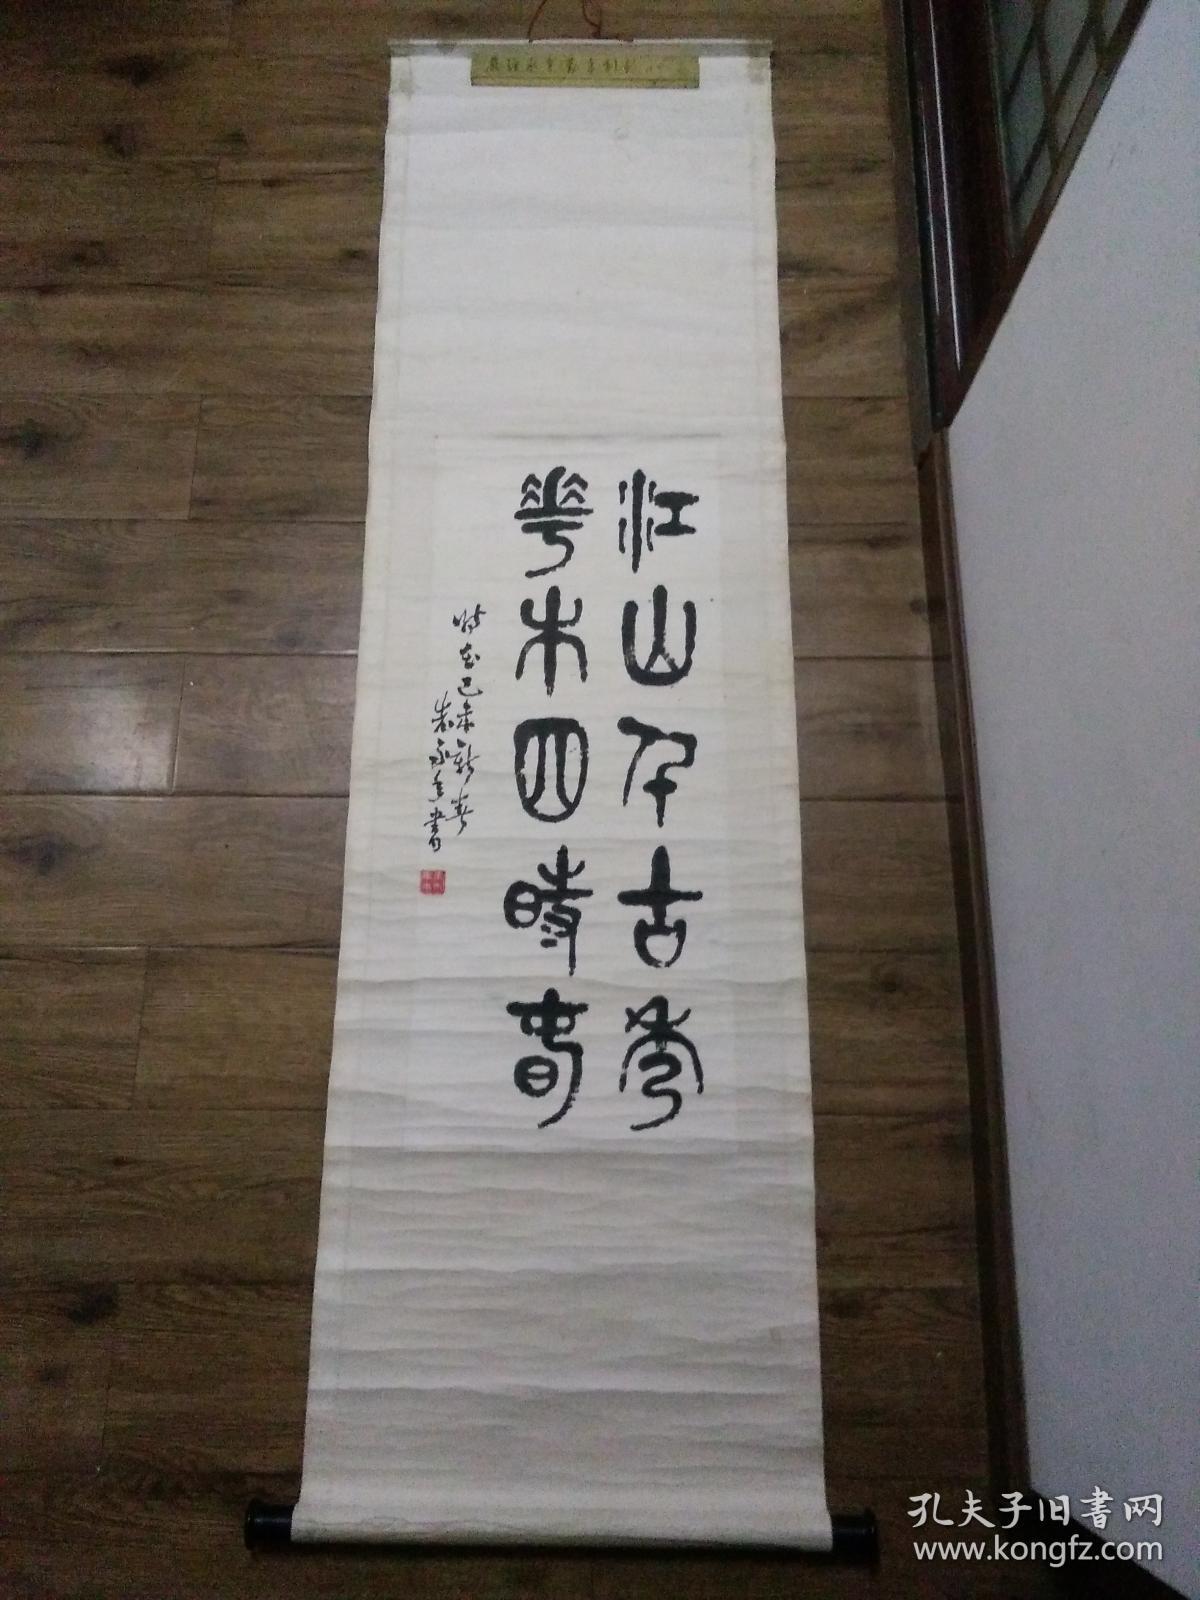 江山千古秀
花木四时春
时在己未新春
永年書
孔夫子旧书网
www.kongfz.com